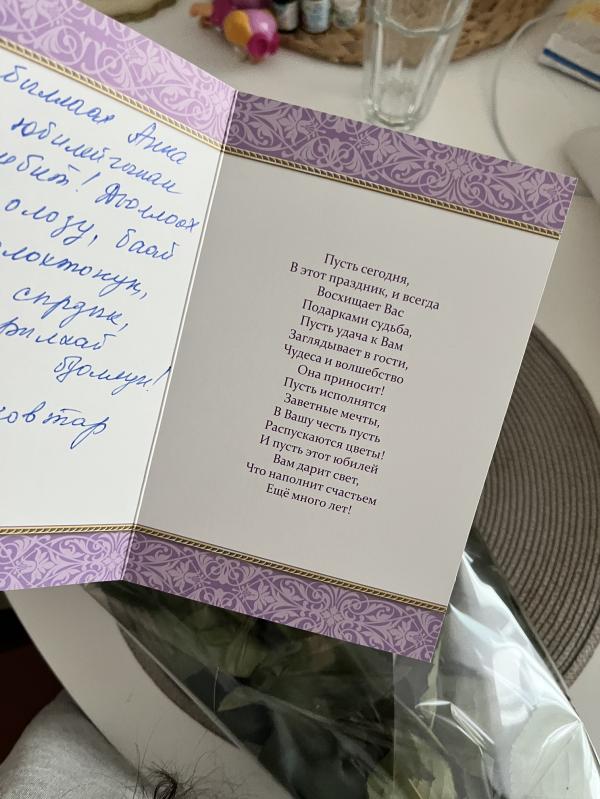 быллаах Анна
юбилейгынан
Дьоллоох
олоҕу, баай
сырдык,
буоллун!
Пусть сегодня,
В этот праздник, и всегда
Восхищает Вас
Подарками судьба,
Пусть удача к Вам
Заглядывает в гости,
Чудеса и волшебство
Она приносит!
Пусть исполнятся
Заветные мечты,
В Вашу честь пусть
Распускаются цветы!
И пусть этот юбилей
Вам дарит свет,
Что наполнит счастьем
Ещё много лет!